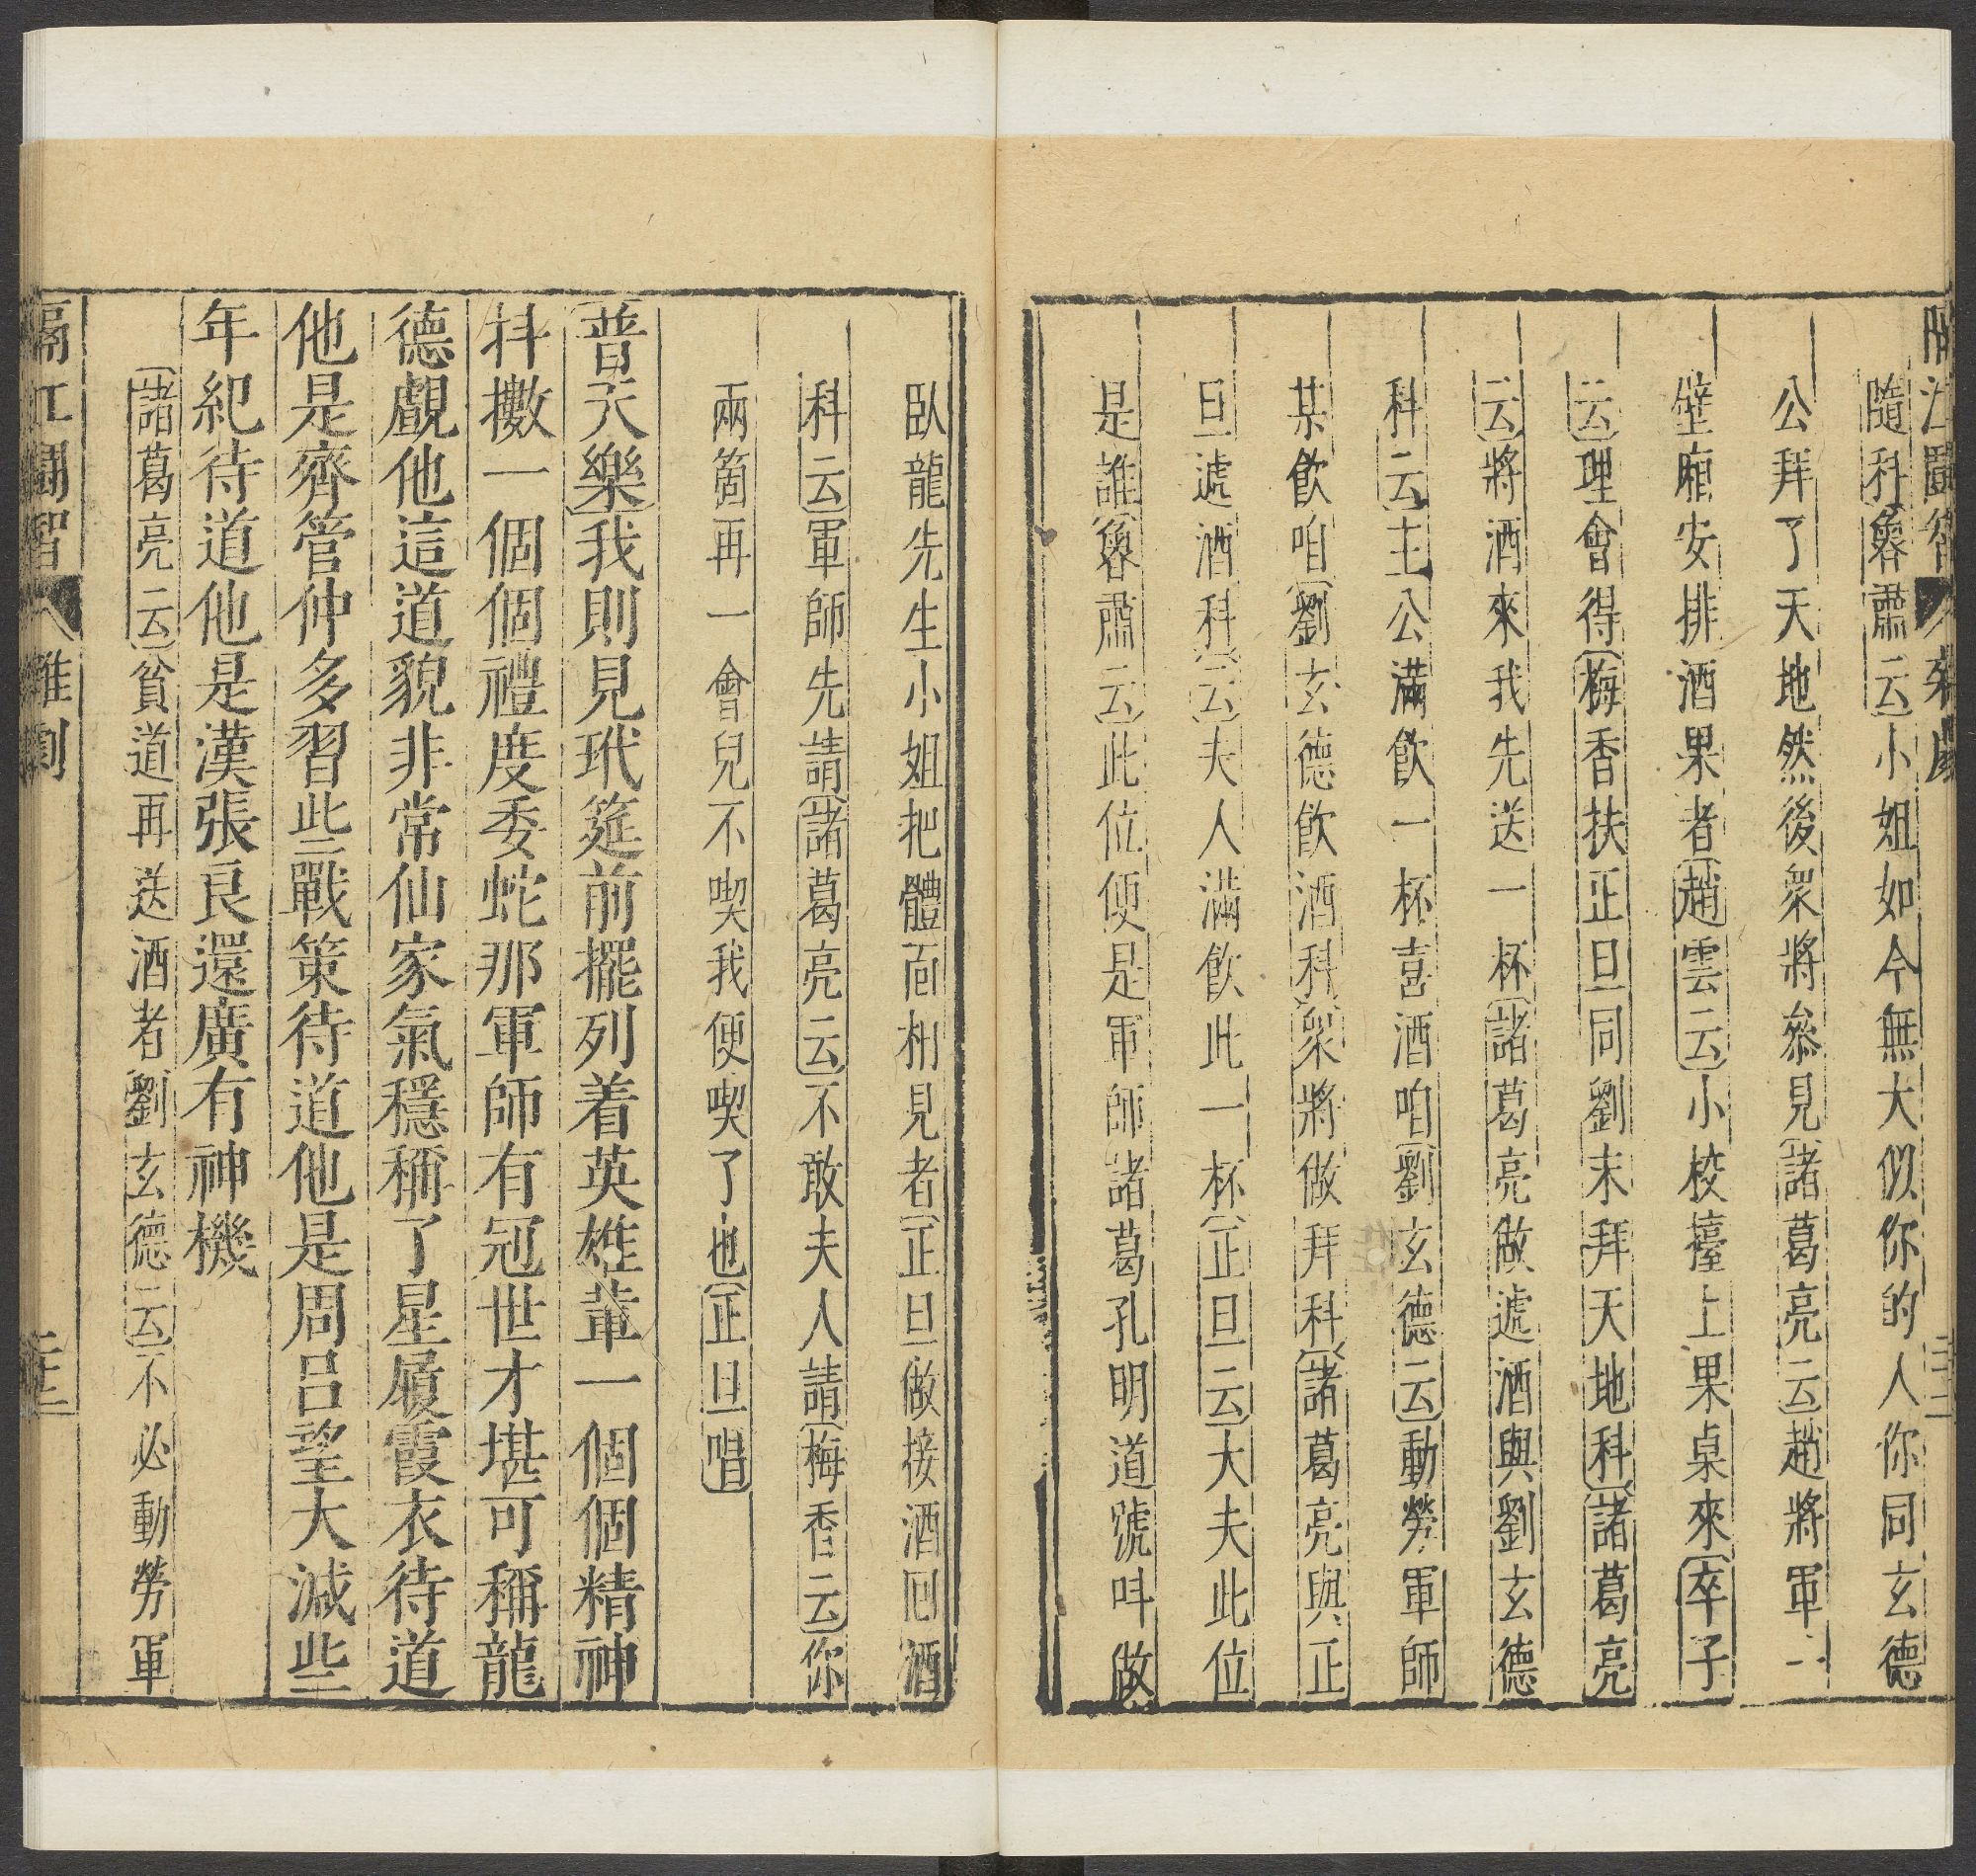 隔江鬭智 雜劇 二十二
隨科魯肅云小姐如今無大似你的人你同玄德
公拜了天地然後衆將叅見諸葛亮云趙將軍一
壁廂安排酒果者趙雲云小校擡上果桌來卒子
云理會得梅香扶正旦同劉末拜天地科諸葛亮
云將酒來我先送一杯諸葛亮做遞酒與劉玄德
科云主公滿飮一杯喜酒咱劉玄德云動勞軍師
某飮咱劉玄德飮酒科衆將做拜科諸葛亮與正
旦遞酒科云夫人滿飮此一杯正旦云大夫此位
是誰魯肅云此位便是軍師諸葛孔明道號呌做
臥龍先生小姐把體面相見者正旦做接酒囘酒
科云軍師先請諸葛亮云不敢夫人請梅香云你
兩箇再一會兒不喫我便喫了也正旦唱
普天樂我則見玳筵前擺列着英雄輩一個個精神
抖擻一個個禮度委蛇那軍師有冠世才堪可稱龍
德覷他這道貌非常仙家氣穩稱了星履霞衣待道
他是齊管仲多習些戰策待道他是周呂望大減些
年紀待道他是漢張良還廣有神機
諸葛亮云貧道再送酒者劉玄德云不必動勞軍
隔江鬭智 雜劇 二十二